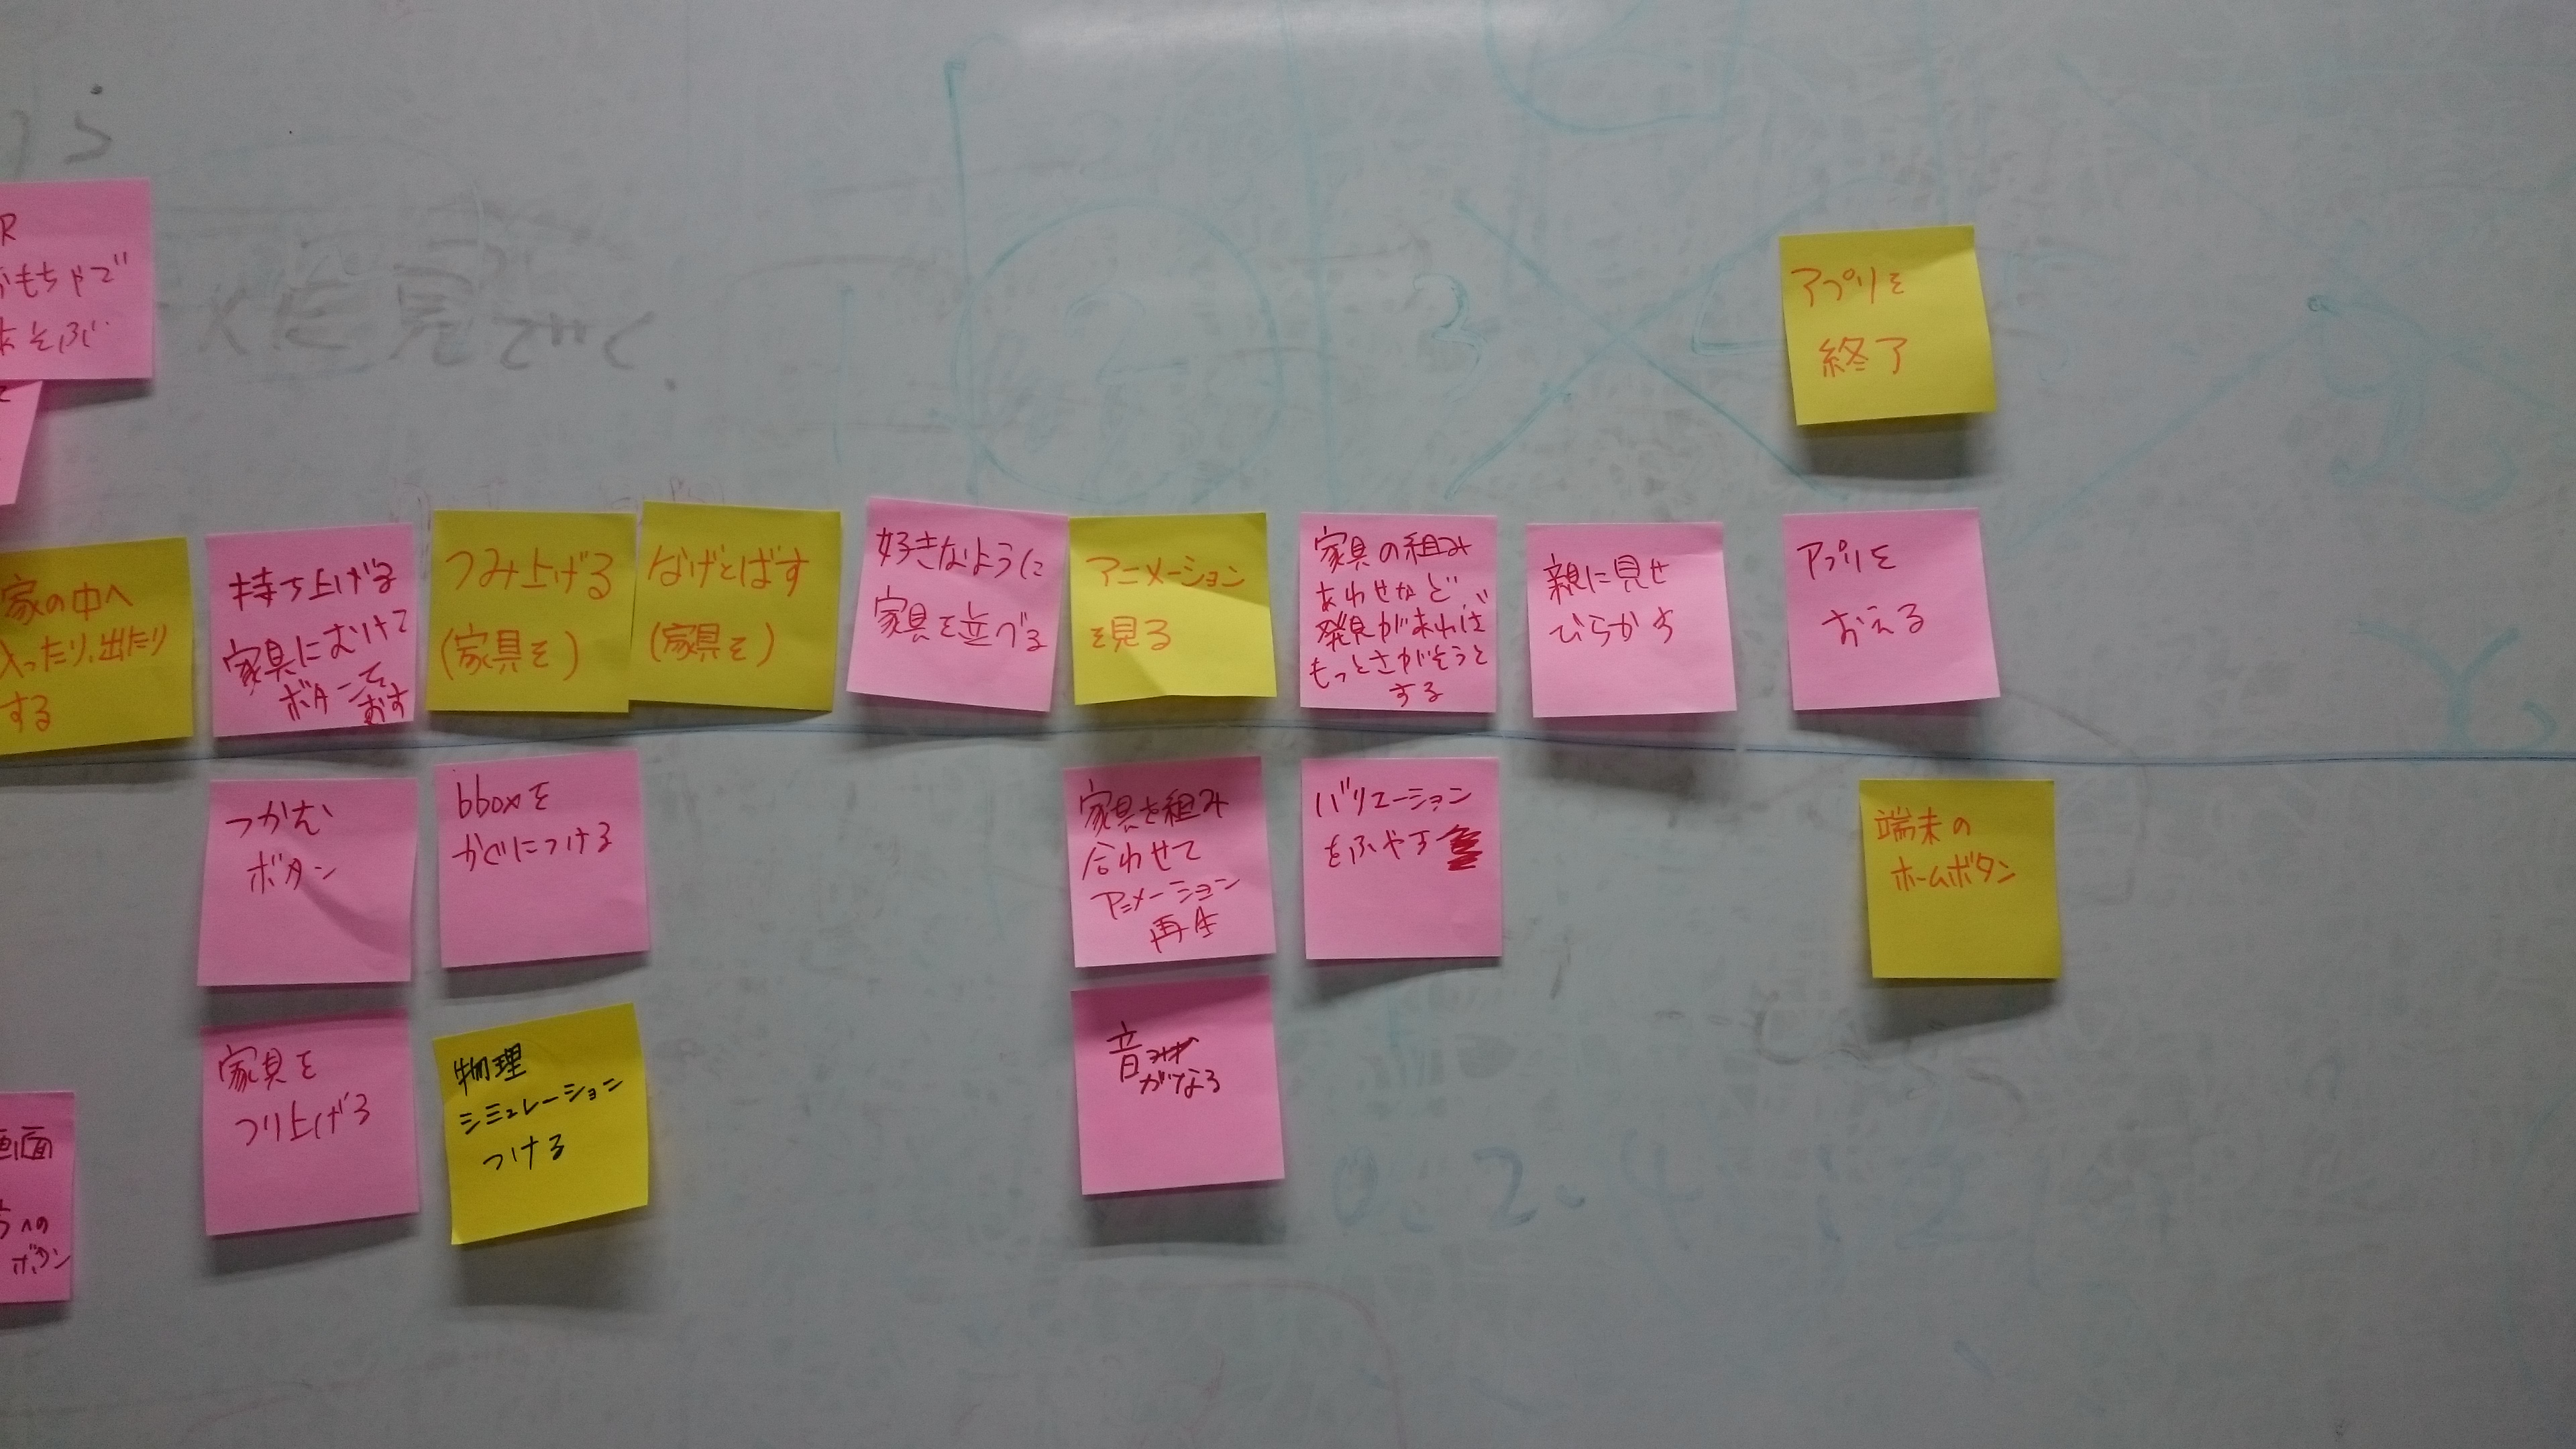 R
おもちゃで
あそぶ
を見ていく
アプリを
終了
家の中へ
入ったり、出たり
する
持ち上げる
家具にむけて
ボタンを
おす
つみ上げる
(家具を)
なげとばす
(家具を)
好きなように
家具を並べる
アニメーション
を見る
家具の組み
あわせなど、
発見があれば
もっとさがそうと
する
親に見せ
びらかす
アプリを
おえる
つかむ
ボタン
bboxを
かぐにつける
家具を組み
合わせて
アニメーション
再生
バリエーション
をふやす
端末の
ホームボタン
家具を
つり上げる
物理
シミュレーション
つける
音
がなる
画面
への
ボタン